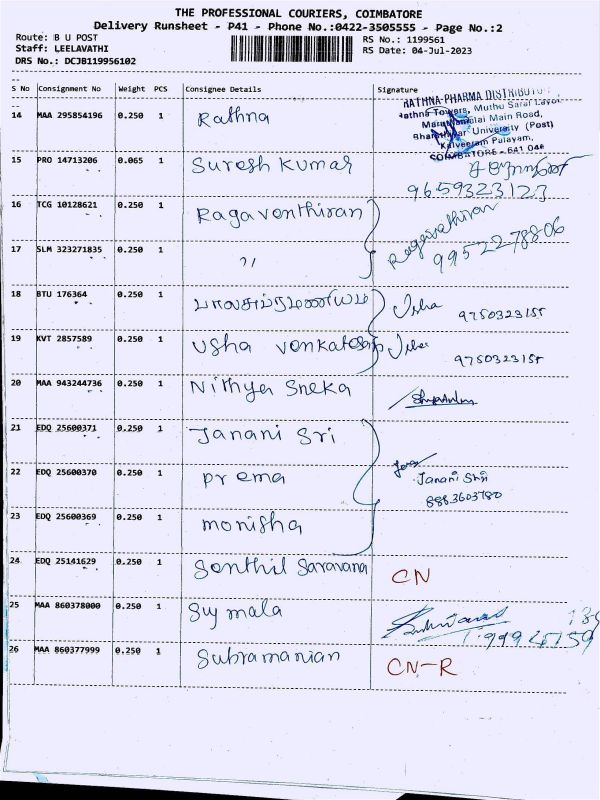 THE PROFESSIONAL COURIERS, COIMBATORE
Delivery Runsheet - P41 - Phone No.:0422-3505555 - Page No.:2
Route: B U POST
RS No.: 1199561
Staff: LEELAVATHI
RS Date: 04-Jul-2023
DRS No.: DCJB119956102
S No Consignment No Weight PCS Consignee Details Signature
14 MAA 295854196 0.250 1 Rathna
RATHNA PHARMA DISTRIBUTO
Rathna Towers, Muthu Sarai Layo
Maruthamalai Main Road,
Bharathiyar University (Post)
Kalveeram Palayam,
COIMBATORE - 641 046
15 PRO 14713206 0.065 1 Suresh Kumar
9659323123
16 TCG 10128621 0.250 1 Ragaventhiran
Ragavathiran
9952278806
17 SLM 323271835 0.250 1 "
18 BTU 176364 0.250 1 பாலசுப்ரமணியம் Usha 9750323155
19 KVT 2857589 0.250 1 Usha Usha 9750323155
20 MAA 943244736 0.250 1 Nithya Sneka
21 EDQ 25600371 0.250 1 Janani Sri
22 EDQ 25600370 0.250 1 prema
Janani Shri
8883603780
23 EDQ 25600369 0.250 1 monisha
24 EDQ 25141629 0.250 1 Senthil Saravana CN
25 MAA 860378000 0.250 1 Suj mala
26 MAA 860377999 0.250 1 Subramanian CN-R